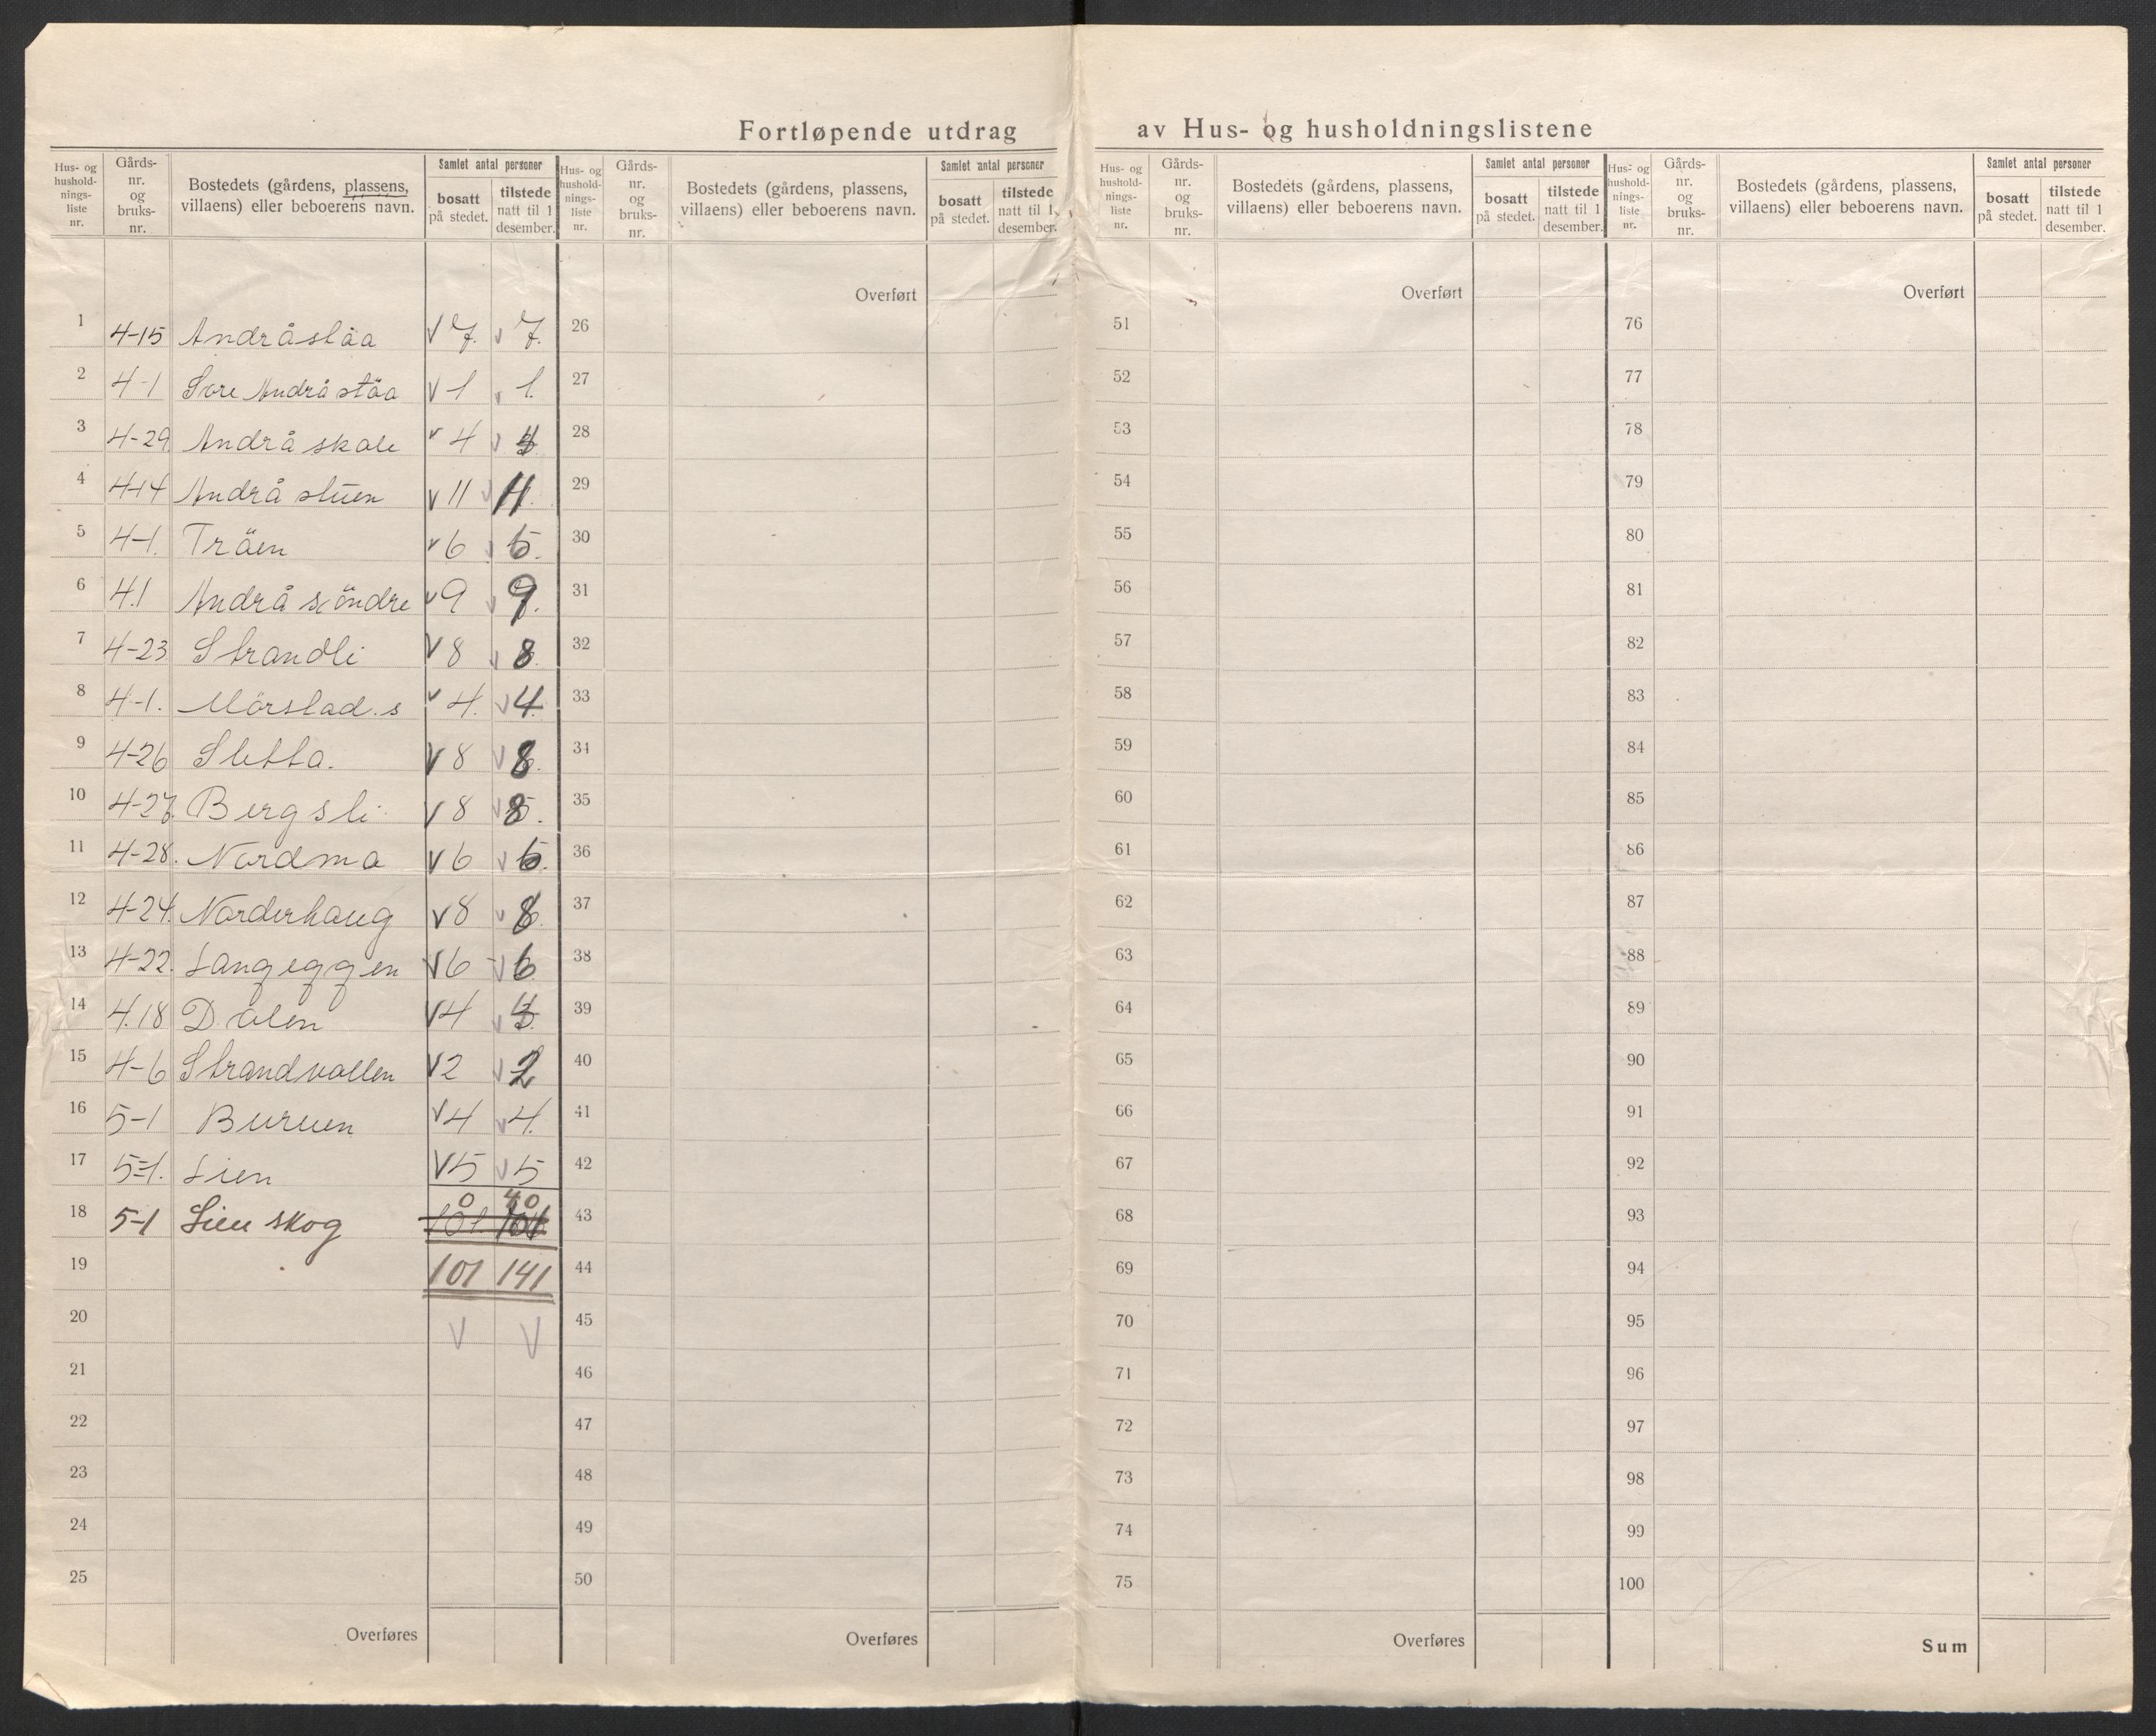 Fortløpende utdrag av Hus- og husholdningslistene
Hus- og hushold-nings-liste nr. | Gårds-nr. og bruks-nr. | Bostedets (gårdens, plassens, villaens) eller beboerens navn. | Samlet antal personer | bosatt på stedet. | tilstede natt til 1 desember.
Hus- og hushold-nings-liste nr. | Gårds-nr. og bruks-nr. | Bostedets (gårdens, plassens, villaens) eller beboerens navn. | Samlet antal personer | bosatt på stedet. | tilstede natt til 1. desember.
Hus- og hushold-nings-liste nr. | Gårds-nr. og bruks-nr. | Bostedets (gårdens, plassens, villaens) eller beboerens navn. | Samlet antal personer | bosatt på stedet. | tilstede natt til 1 desember.
Hus- og hushold-nings-liste nr. | Gårds-nr. og bruks-nr. | Bostedets (gårdens, plassens, villaens) eller beboerens navn. | Samlet antal personer | bosatt på stedet. | tilstede natt til 1 desember.
1 4-15 Andråslåa 7. 7.
2 4-1 Andråståa 1 1.
3 4-29 Andråskole 4
4 4-14 Andråstuen 11 11.
5 4-1. Tråen 6
6 4.1 Andrå söndre 9 9.
7 4-23 Strandli 8 8.
8 4-1. Mörstad.s 4. 4.
9 4-26 Sletta. 8 8.
10 4-27. Bergsli 8 8.
11 4-28. Nordmo 6 6.
12 4-24. Norderhaug 8 8.
13 4-22. Langeggen 6 6
14 4.18 Dalen 4
15 4-6 Strandvollen 2 2
16 5-1 Buruen 4 4.
17 5-1. Lien 5 5
18 5-1 Lien skog 0 40
101
19 101 141
20
21
22
23
24
25
Overføres
Overført
26
27
28
29
30
31
32
33
34
35
36
37
38
39
40
41
42
43
44
45
46
47
48
49
50
Overføres
Overført
51
52
53
54
55
56
57
58
59
60
61
62
63
64
65
66
67
68
69
70
71
72
73
74
75
Overføres
Overført
76
77
78
79
80
81
82
83
84
85
86
87
88
89
90
91
92
93
94
95
96
97
98
99
100
Sum